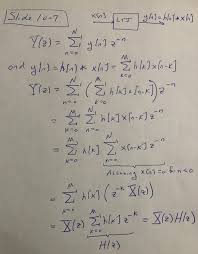 Slide 10-7
x[n] → LTI → y[n]=h[n]*x[n]
Y(z) = Σ_{n=0}^{N} y[n] z^{-n}
and y[n] = h[n] * x[n] = Σ_{k=0}^{M} h[k] x[n-k]
Y(z) = Σ_{n=0}^{N} ( Σ_{k=0}^{M} h[k] x[n-k] ) z^{-n}
= Σ_{k=0}^{M} h[k] Σ_{n=0}^{N} x[n-k] z^{-n}
Assuming x[n]=0 for n<0
= Σ_{k=0}^{M} h[k] ( z^{-k} X(z) )
= X(z) Σ_{k=0}^{M} h[k] z^{-k} = X(z) H(z)
H(z)